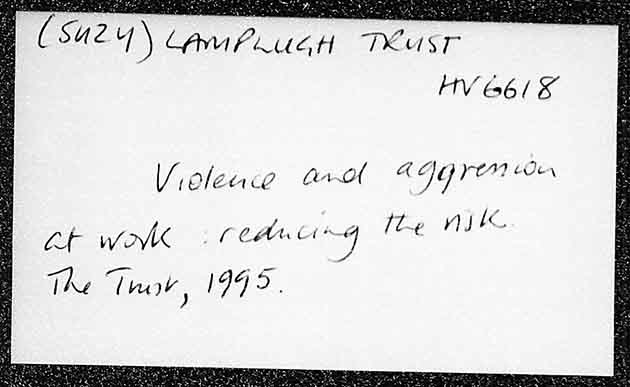 (SUZY) LAMPLUGH TRUST
HV6618
Violence and aggression
at work : reducing the risk.
The Trust, 1995.